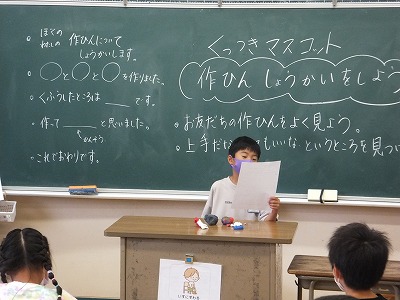 ぼくの
わたしの 作ひんについて
しょうかいします。
○と○と○を作りました。
くふうしたところは＿＿です。
作って＿＿と思いました。
かんそう
これでおわりです。
くっつきマスコット
作ひん しょうかいをしよう
・お友だちの作ひんをよく見よう。
・上手だな いいな というところを見つ